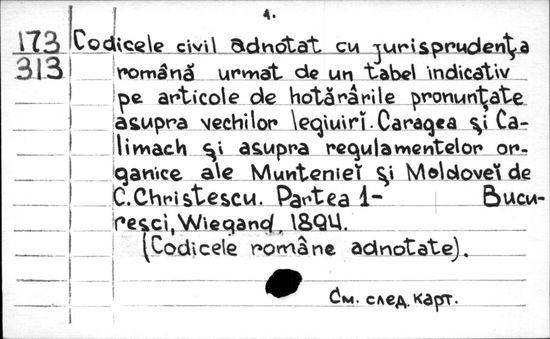 1.
173 Codicele civil adnotat cu jurisprudența
313 română urmat de un tabel indicativ
pe articole de hotărârile pronunțate
asupra vechilor legiuirĭ. Caragea și Ca-
limach și asupra regulamentelor or-
ganice ale Munteniei și Moldoveĭ de
C. Christescu. Partea 1- Bucu-
resci, Wiegand, 1894.
(Codicele române adnotate).
См. след. карт.